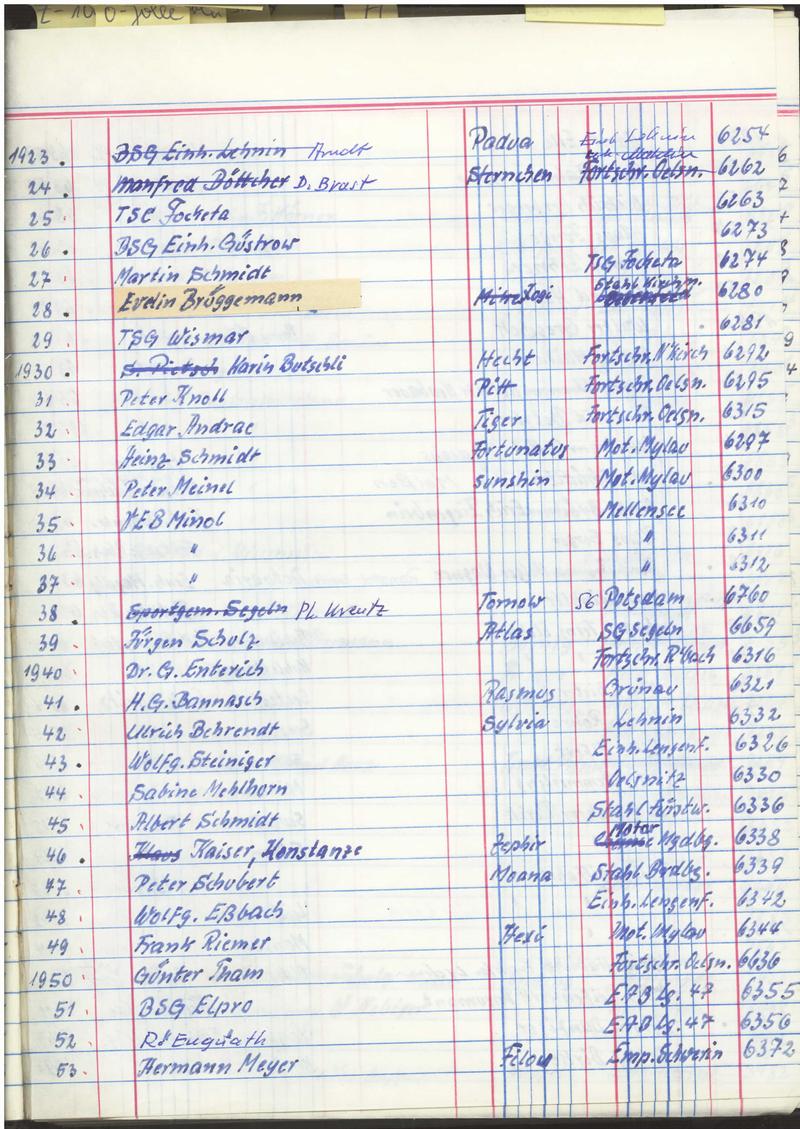 1923. BSG Einh. Lehnin Arndt Padua Einh. Lehnin 6254
24. Manfred Böttcher D. Brast Sternchen Fortschr. Oelsn. 6262
25 TSG Jocketa 6263
26. BSG Einh. Güstrow 6273
27 Martin Schmidt TSG Jocketa 6274
28. Evelin Brüggemann Kogi Stahl Kirchm. 6280
29 TSG Wismar 6281
1930. S. Pietsch Karin Butschli Hecht Fortschr. N'kirch 6292
31 Peter Knoll Pitt Fortschr. Oelsn. 6295
32 Edgar Andrae Tiger Fortschr. Oelsn. 6315
33 Heinz Schmidt Fortunatus Mot. Mylau 6297
34 Peter Meinel sunshin Mot. Mylau 6300
35 VEB Minol Mellensee 6310
36 " " 6311
37 " " 6312
38. Sportgem. Segeln Ph. Kreutz Tornow SG Potsdam 6760
39 Jürgen Schulz Atlas SG Segeln 6659
1940 Dr. G. Enterich Fortschr. R'bach 6316
41. H.G. Bannasch Rasmus Grünau 6321
42 Ulrich Behrendt Sylvia Lehnin 6332
43. Wolfg. Steiniger Einh. Lengenf. 6326
44 Sabine Mehlhorn Oelsnitz 6330
45 Albert Schmidt Stahl Fürstw. 6336
46. Klaus Kaiser, Konstanze Zephir Motor Mgdbg. 6338
47 Peter Schubert Moana Stahl Brdbg. 6339
48 Wolfg. Eßbach Einh. Lengenf. 6342
49 Frank Riemer Hexi Mot. Mylau 6344
1950 Günter Tham Fortschr. Oelsn. 6636
51 BSG Elpro EAB Lg. 47 6355
52 EAB Lg. 47 6356
53. Hermann Meyer Filou Emp. Schwerin 6372